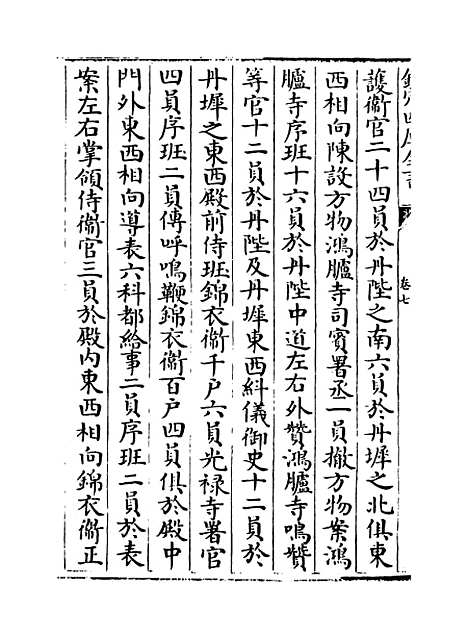 欽定四庫全書
卷七
護衛官二十四員於丹陛之南六員於丹墀之北俱東
西相向陳設方物鴻臚寺司賓署丞一員撤方物案鴻
臚寺序班十六員於丹陛中道左右外贊鴻臚寺鳴贊
等官十二員於丹陛及丹墀東西糾儀御史十二員於
丹墀之東西殿前侍班錦衣衛千户六員光禄寺署官
四員序班二員傳呼鳴鞭錦衣衛百户四員俱於殿中
門外東西相向導表六科都給事二員序班二員於表
案左右掌領侍衛官三員於殿内東西相向錦衣衛正